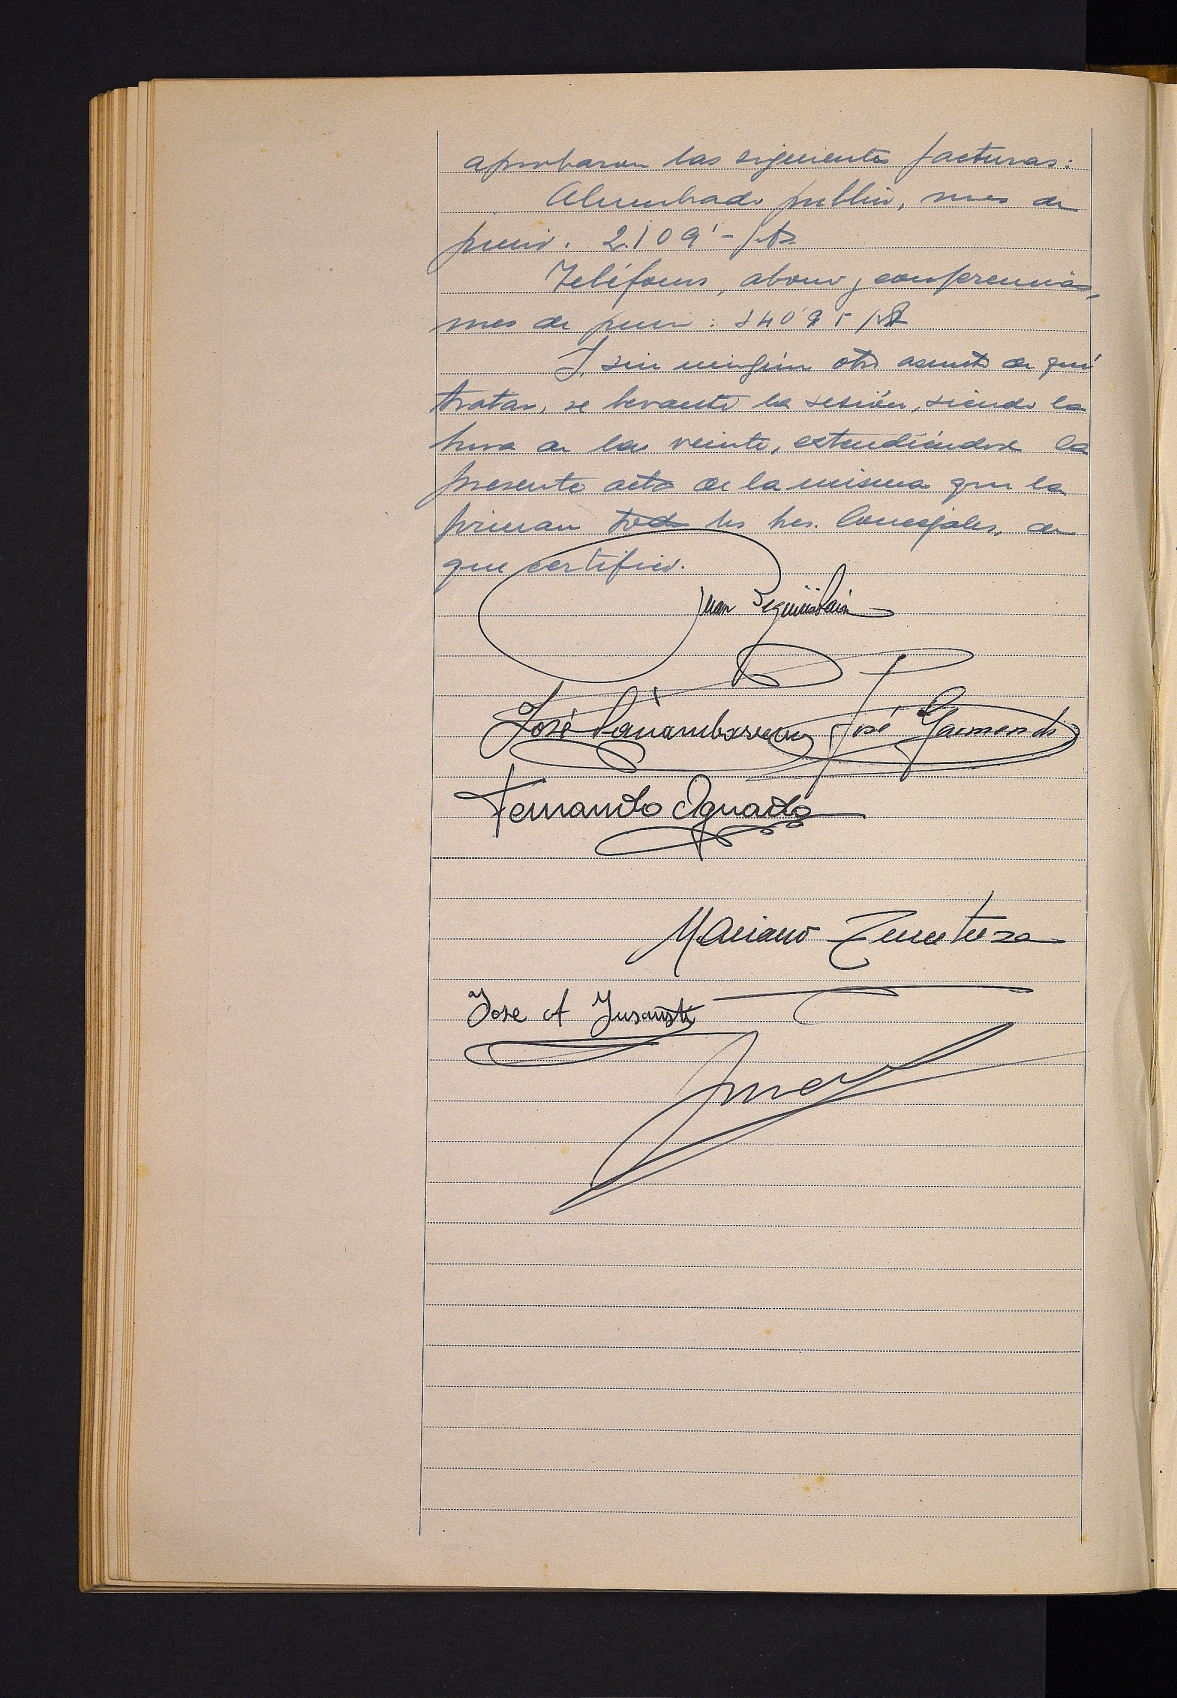 aprobaron las siguientes facturas:
Alumbrado público, mes de
junio. 2.109'- pts.
Teléfonos, abono y conferencias,
mes de junio: 340'95 pts
Y sin ningún otro asunto de qué
tratar, se levantó la sesión, siendo la
hora de las veinte, extendiéndose la
presente acta de la misma que la
firman todos los Sres. Concejales, de
que certifico.
Juan Beguiristain
José José Garmendi
Fernando Aguado
Mariano
Jose A